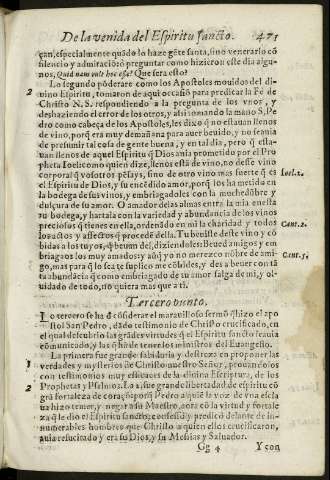 De la venida del Espiritu sancto. 471
çan, especialmente quãdo lo haze gẽte santa, sino venerarlo cõ
silencio y admiraciõ ò preguntar como hizieron este dia algu-
nos, Quid nam vult hoc esse? Que serà esto?
2 Lo segundo põderare como los Apostoles mouidos del di-
uino Espiritu, tomaron de aqui ocasiõ para predicar la Fè de
Christo N. S. respondiendo a la pregunta de los vnos, y
deshaziendo el error de los otros, y assi tomando la mano S. Pe
dro como cabeça de los Apostoles, les dixo q̃ no estauan llenos
de vino, porq̃ era muy de mañana para auer beuido, y no seauia
de presumir tal cosa de gente buena, y en tal dia, pero q̃ esta-
uan llenos de aquel Espiritu q̃ Dios auia prometido por el Pro
pheta Ioel: como quien dize, llenos està de vino, no desse vino
corporal q̃ vosotros pẽsays, sino de otro vino mas fuerte q̃ es
Ioel. 2.
el Espiritu de Dios, y su encẽdido amor, porq̃ los ha metido en
la bodega de sus vinos, y embriagadoles con la muchedũbre y
dulçura de su amor. O amador de las almas entra la mia en esta
tu bodega, y hartala con la variedad y abundancia de los vinos
preciosos q̃ tienes en ella, ordenãdo en mi la charidad y todos
Cant. 2.
los actos y afectos que procedẽ della. Tu beuiste deste vino y cõ
bidas a los tuyos, q̃ beuan del, diziendoles: Beued amigos y em
briagaos los muy amados y aũq̃ yo no merezco nõbre de ami-
Cant. 5.
go, mas para q̃ lo sea te suplico me cõbides, y des a beuer con tã
ta abundãcia que como embriagado de tu amor salga de mi, y ol-
uidado de todo, no quiera mas que a ti.
Tercero punto.
Lo tercero se ha d̃ cõsiderar el marauilloso sermõ q̃ hizo el apo
stol San Pedro, dãdo testimonio de Christo crucificado, en
el qual descubrio las grãdes virtudes que el Espiritu sancto le auia
comunicado, y las q̃ hã de tener los ministros del Euangelio.
1 La primera fue grande sabiduria y destreza en proponer las
verdades y mysterios de Christo nuestro Señor, prouandolos
con testimonios muy eficaces de la diuina Escriptura, de los
2 Prophetas y Psalmos. La 2. fue grande libertad de espiritu cõ
grã fortaleza de coraçõ: porq̃ Pedro a quiẽ la voz de vna escla
ua hizo temer, y negar a su Maestro, aora cõ la virtud y fortale
za q̃ le dio el Espiritu sancto, le confessò y predicò delante de in-
numerables hombres que Christo a quien ellos crucificaron,
auia resucitado y era su Dios, y su Mesias y Saluador.
Gg 4 Y con